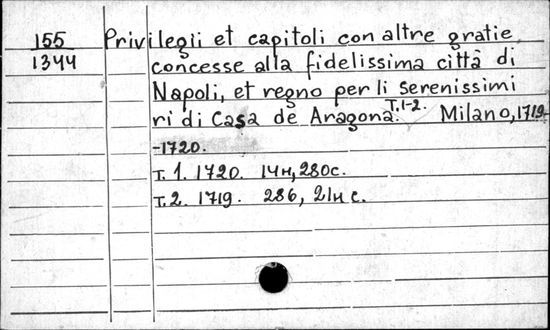 155
1344
Privilegii et capitoli con altre gratie
concesse alla fidelissima città di
Napoli, et regno per li serenissimi
ri di Casa de Aragona. T.1-2. Milano, 1719-
-1720.
T. 1. 1720. 14н, 280с.
T. 2. 1719. 286, 21н с.